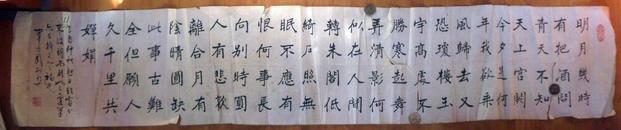 明月幾時
有把酒問
青天不知
天上宮闕
今夕是何
年我欲乘
風歸去又
恐瓊樓玉
宇高處不
勝寒起舞
弄清影何
似在人間
轉朱閣低
綺戶照無
眠不應有
恨何事長
向別時圓
人有悲歡
離合月有
陰晴圓缺
此事古難
全但願人
久千里共
嬋娟